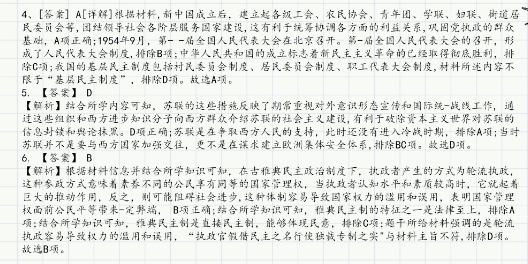 4、[答案] A[详解]根据材料,新中国成立后，建立起各级工会、农民协会、青年团、学联、妇联、街道居
民委员会等,团结领导社会各阶层服务国家建设,这有利于统筹协调各方面的利益关系,巩固党执政的群众
基础，A项正确;1954年9月，第一-届全国人民代表大会在北京召开。第一届全国人民代表大会的召开，形
成了人民代表大会制度,排除B项;中华人民共和国的成立标志着新民主主义革命的已经取得彻底胜利，排
除C项;我国的基层民主制度包括村民委员会制度、居民委员会制度、职工代表大会制度,材料所述内容不
限于“基层民主制度”，排除D项。故选A项。
5. 【答案】 D
【解析】结合所学内容可知，苏联的这些措施反映了期常重视对外意识形态宣传和国际统-战线工作，通
过这些组织和西方进步知识分子向西方群众介绍苏联的社会主义建设,有利于破除资本主义世界对苏联的
信息封锁和舆论抹黑。D项正确;苏联是在争取西方人民的支持，此时还没有进入冷战时期，排除A项;当时
苏联并不是要与西方国家加强交往，更不是在谋求建立欧洲集体安全体系,排除BC项。故选D项。
6. 【答案】 B
【解析】根据材料信息并结合所学知识可知，在古雅典民主政治制度下，执政者产生的方式为轮流执政，
这种参政方式意味着素养不同的公民享有同等的国家管理权，当执政者认知水平和素质较高时，它就起着
巨大的推动作用，反之，则可能阻碍社会进步,这种体制容易导致国家权力的滥用和误用，表明国家管理
权面前公民平等带来-定弊端， B项正确;结合所学知识可知，雅典民主制的特征之一是法律至上，排除A
项;结合所学知识可知，雅典民主制是直接民主制，能够体现民意，排除C项;题干所给材料强调的是轮流
执政容易导致权力的滥用和误用，“执政官假借民主之名行使独裁专制之实”与材料主旨不符,排除D项。
故选B项。